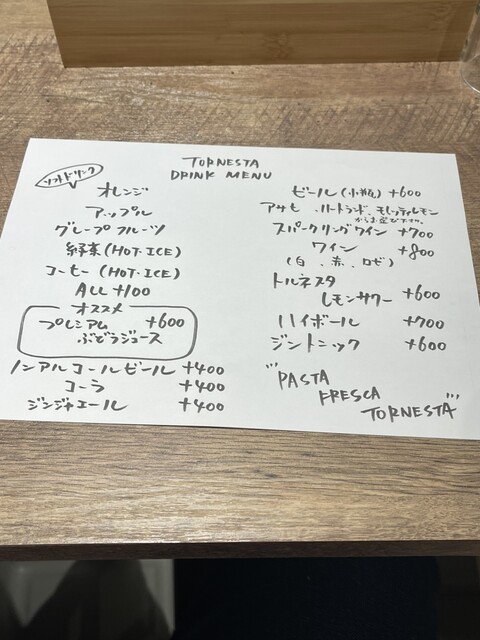 TORNESTA
DRINK MENU
ソフトドリンク
オレンジ
アップル
グレープフルーツ
緑茶(HOT・ICE)
コーヒー(HOT・ICE)
ALL +100
オススメ
プレミアム +600
ぶどうジュース
ノンアルコールビール +400
コーラ +400
ジンジャエール +400
ビール(小瓶) +600
アサヒ、ハートランド、モレッティレモン
からお選び下さい。
スパークリングワイン +700
ワイン +800
(白、赤、ロゼ)
トルネスタ
レモンサワー +600
ハイボール +700
ジントニック +600
PASTA
FRESCA
TORNESTA